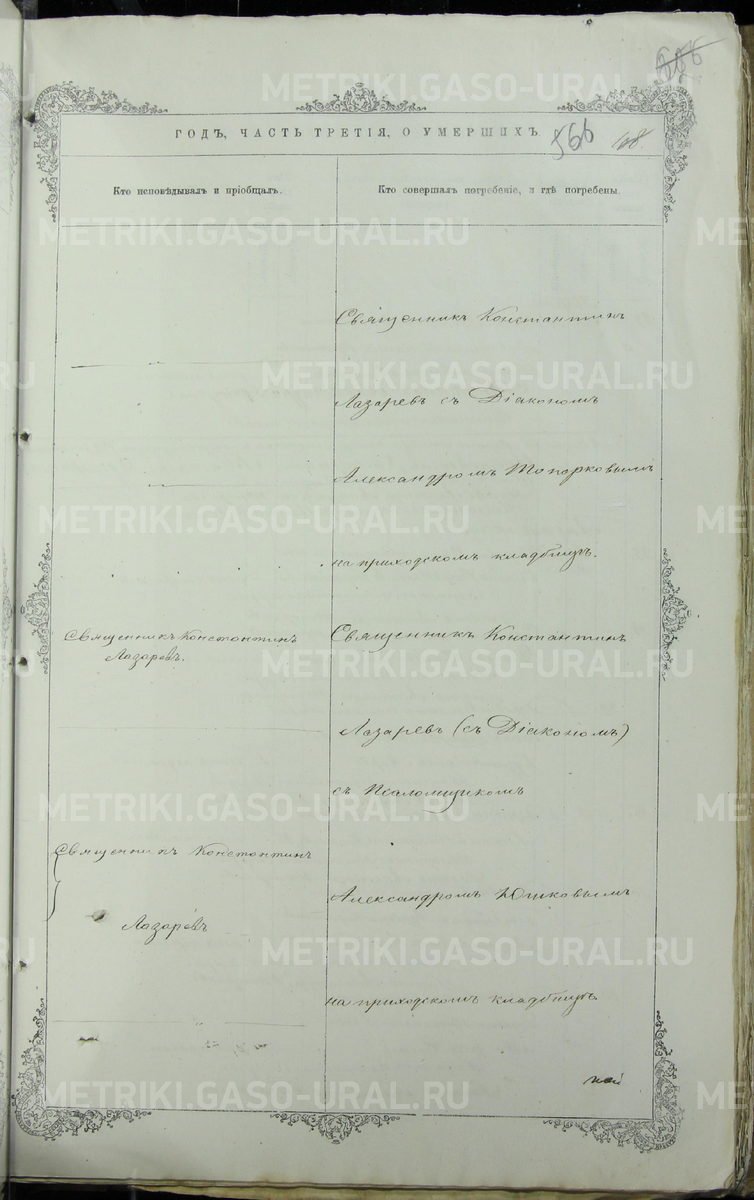 METRIKI.GASO-URAL.RU
566
ГОДЪ, ЧАСТЬ ТРЕТІЯ, О УМЕРШИХЪ
Кто исповѣдывалъ и пріобщалъ.
Кто совершалъ погребеніе, и гдѣ погребены.
Священникъ Константинъ
Лазаревъ.
Священникъ Константинъ
Лазаревъ
Священникъ Константинъ
Лазаревъ съ Діакономъ
Александромъ Топорковымъ
на приходскомъ кладбищѣ.
Священникъ Константинъ
Лазаревъ (съ Діакономъ)
съ Псаломщикомъ
Александромъ Юшковымъ
на приходскомъ кладбищѣ.